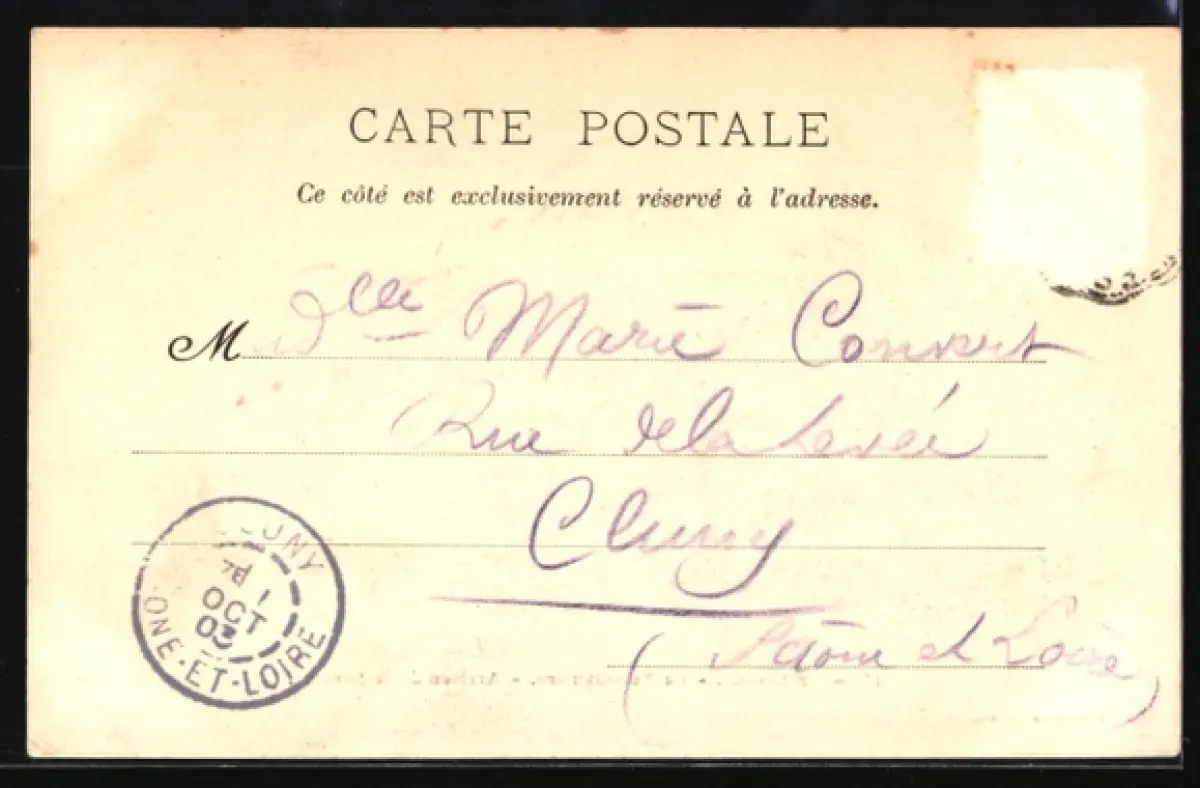 CARTE POSTALE
Ce côté est exclusivement réservé à l'adresse.
Mdlle Marie Convert
Rue de la Levée
Cluny
(Saône et Loire)
CLUNY
OCT
03
ONE-ET-LOIRE